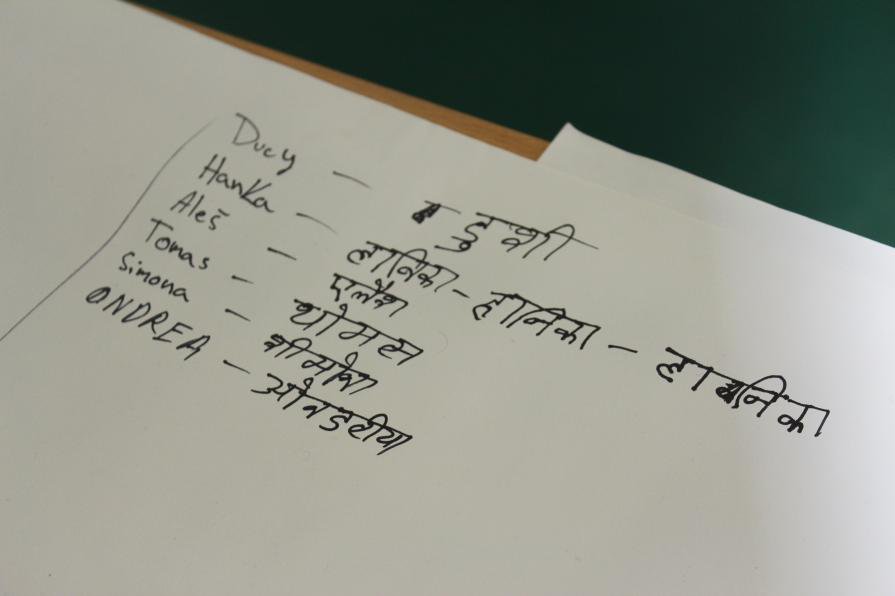 Ducy — डुची
Hanka — हानिका – हानिका – हानिका
Aleš —
Tomas — थोमस
Simona — सीमोना
ONDREA — ओनडरीया